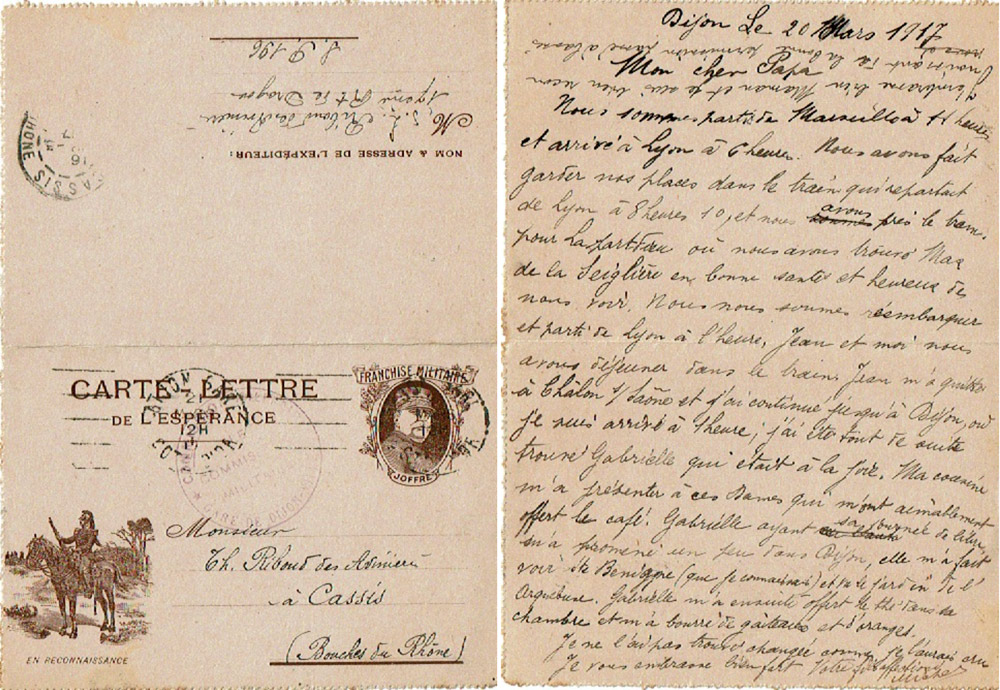 S. P. 196
NOM & ADRESSE DE L'EXPÉDITEUR:
CASSIS
RHONE
CARTE LETTRE
DE L'ESPÉRANCE
FRANCHISE MILITAIRE
JOFFRE
DIJON
12H
COMMIS
GARE DE DIJON
Monsieur
Th. Riboud des Avinières
à Cassis
(Bouches du Rhône)
EN RECONNAISSANCE
Dijon Le 20 Mars 1917
Mon cher Papa
Nous sommes parti de Marseille à 11 heures
et arrivé à Lyon à 6 heures. Nous avons fait
garder nos places dans le train qui repartait
de Lyon à 8 heures 10, et nous avons pris le tram
pour La partDieu où nous avons trouvé Max
de la Seiglière en bonne santé et heureux de
nous voir. Nous nous sommes réembarquer
et parti de Lyon à l'heure. Jean et moi nous
avons déjeuner dans le train. Jean m'a quitté
à Châlon s/ Saône et j'ai continué jusqu'à Dijon, où
je suis arrivé à 1 heure; j'ai été tout de suite
trouvé Gabrielle qui était à la joie. Ma cousine
m'a présenter à ces Dames qui m'ont aimablement
offert le café. Gabrielle ayant sa journée de libre,
m'a promené un peu dans Dijon, elle m'a fait
voir Ste Benigne (que je connaissais) et le jardin de l'
Arquebuse. Gabrielle m'a ensuite offert le thé dans sa
chambre et m'a bourré de gâteaux et d'oranges.
Je ne l'ai pas trouvé changée comme je l'aurais cru
Je vous embrasse bien fort Votre fils affectionné
Michel
J'embrasse bien Maman et